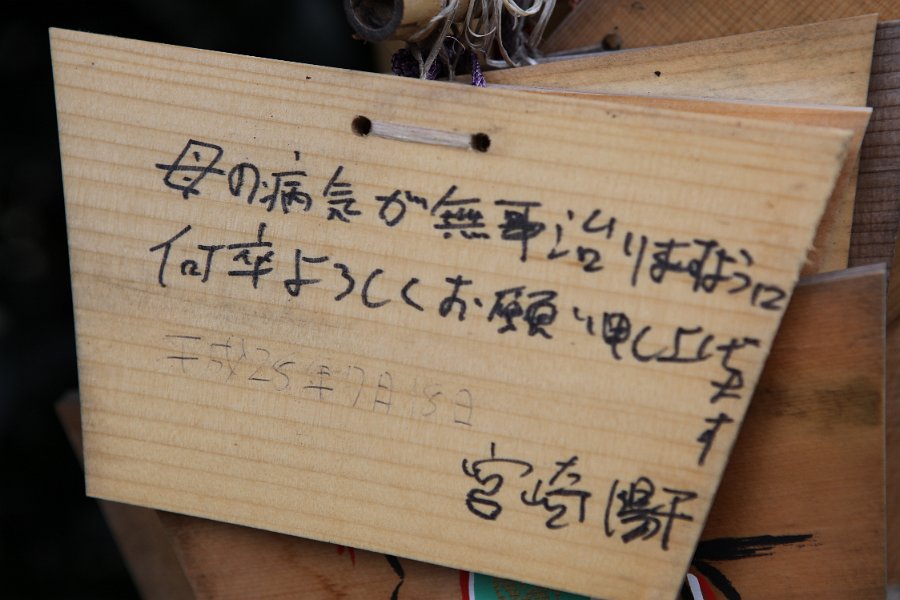 母の病気が無事治りますように
何卒よろしくお願い申し上げます
平成25年7月15日
宮崎陽子